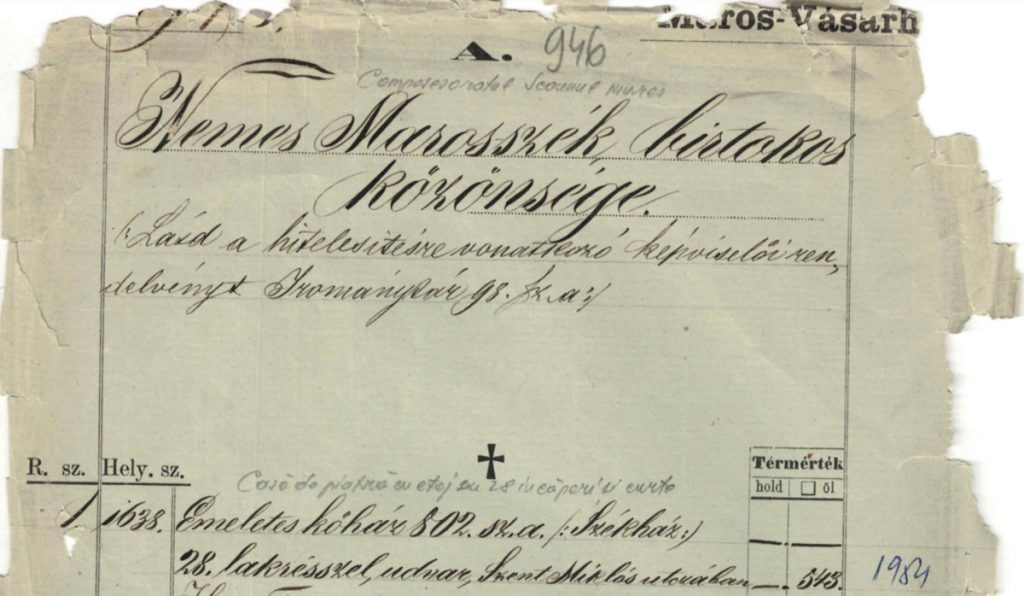 Maros-Vásárh
A.
946
Composesoratul Scaunul Mureș
Nemes Marosszék, birtokos
közönsége.
(: Lásd a hitelesitésre vonatkozó képviselői ren„
delvényt Irománytár 98. sz. a :)
R. sz. Hely. sz.
Térmérték
hold □ öl
Casă de piatră cu etaj cu 28 incăperi și curte
1 1638. Emeletes kőház 802. sz. a. (: Székház :)
28. lakrésszel, udvar, Szent Miklós utczában — 543. 1984